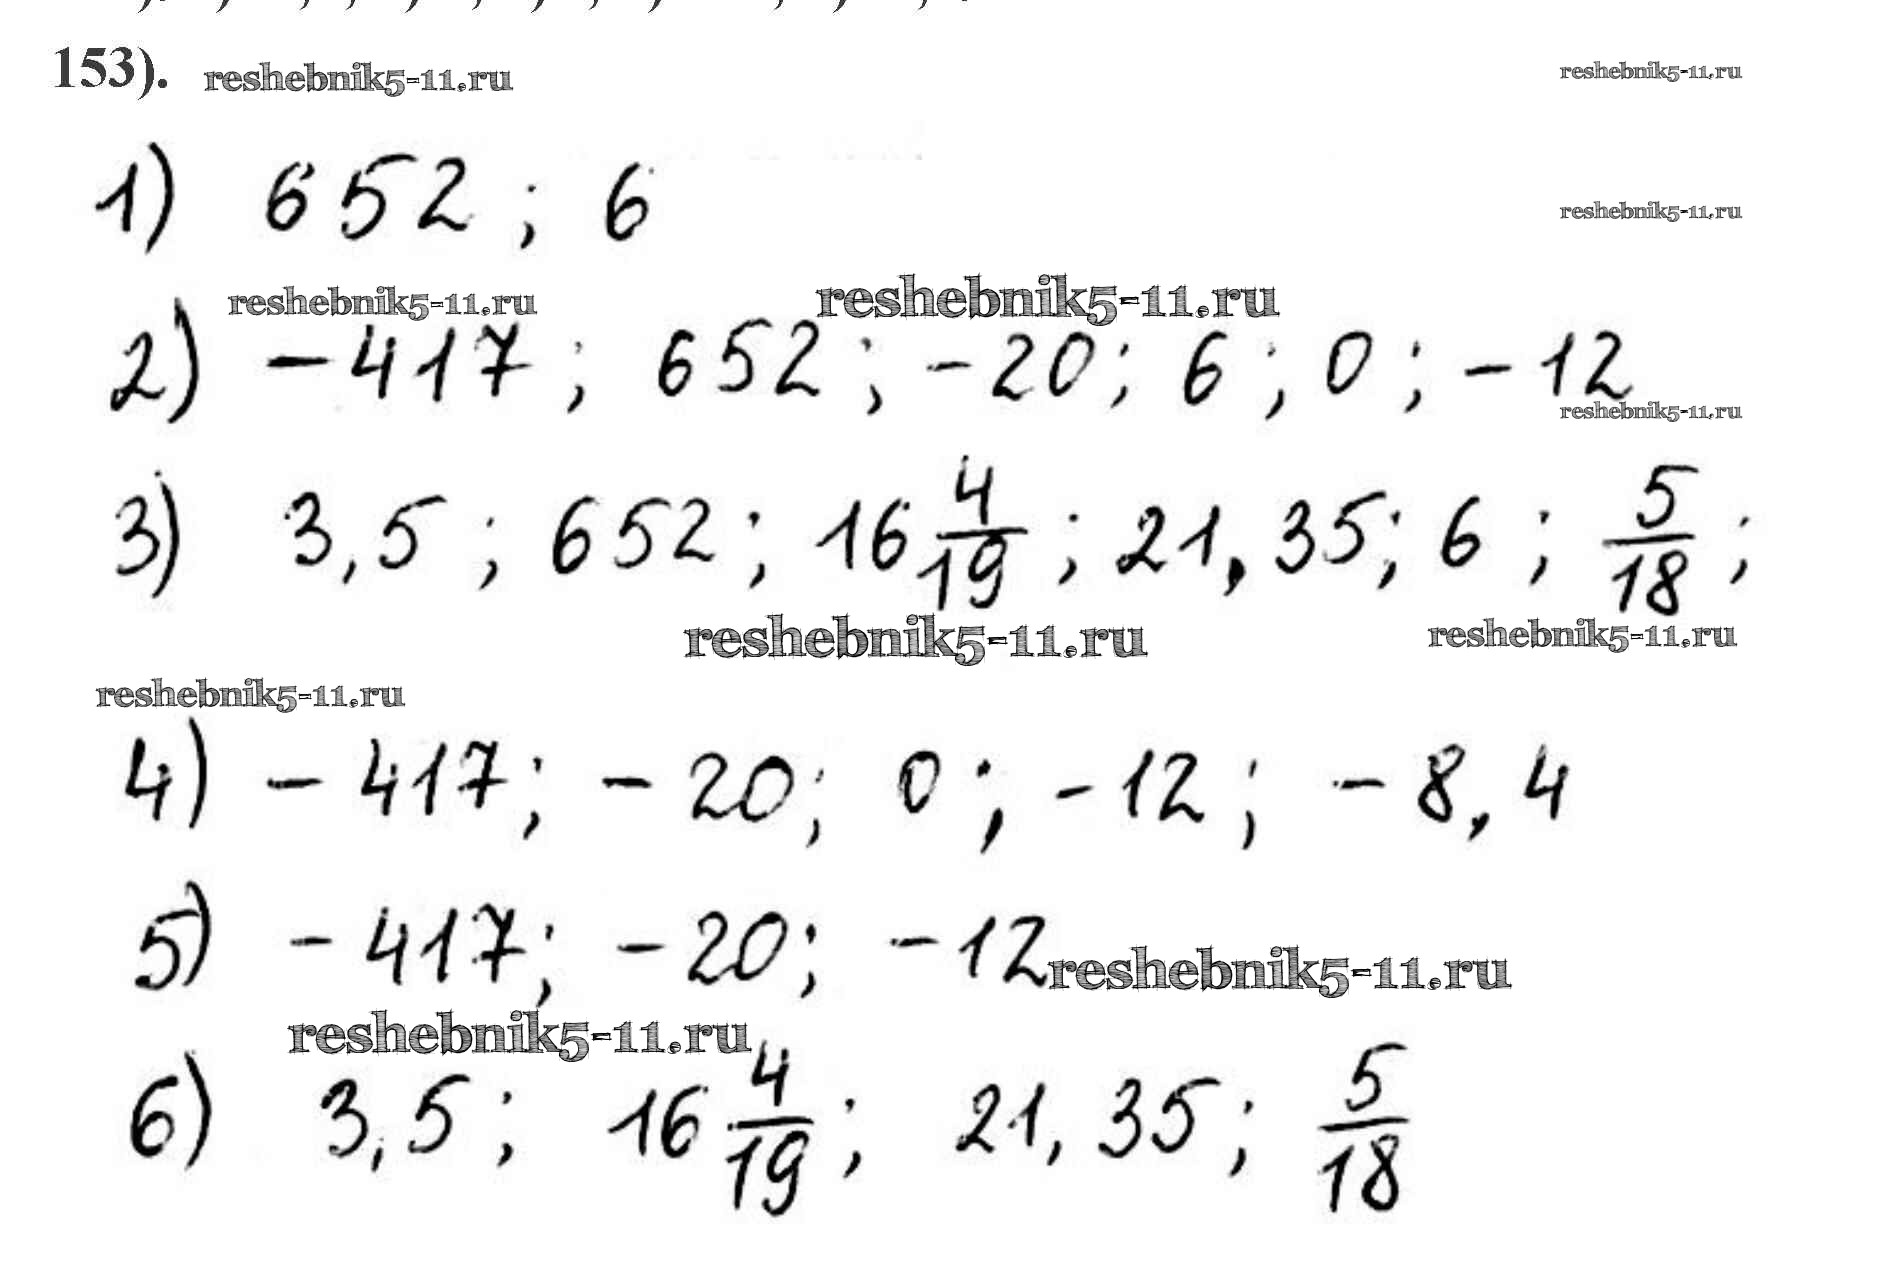 153). reshebnik5-11.ru reshebnik5-11.ru
1) 652 ; 6
reshebnik5-11.ru
reshebnik5-11.ru reshebnik5-11.ru
2) -417 ; 652 ; -20 ; 6 ; 0 ; -12
reshebnik5-11.ru
3) 3,5 ; 652 ; 16 4/19 ; 21,35 ; 6 ; 5/18 ;
reshebnik5-11.ru reshebnik5-11.ru
reshebnik5-11.ru
4) -417 ; -20 ; 0 ; -12 ; -8,4
5) -417 ; -20 ; -12 reshebnik5-11.ru
reshebnik5-11.ru
6) 3,5 ; 16 4/19 ; 21,35 ; 5/18